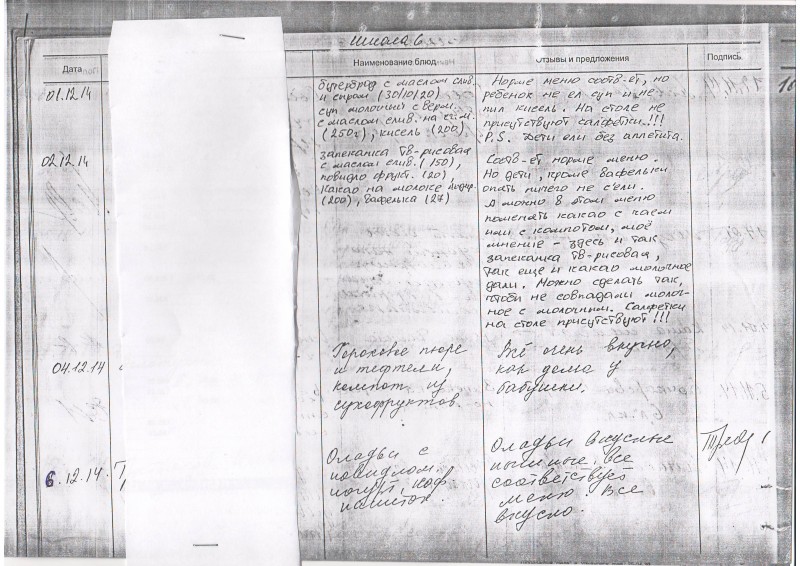 Школа 6
Дата
Наименование блюд
Отзывы и предложения
Подпись
01.12.14
бутерброд с маслом слив.
и сыром (30/10/20)
суп молочный с верм.
с маслом слив.
(250г), кисель (200)
Норме меню соотв-ет, но
ребенок не ел суп и не
пил кисель. На столе не
присутствуют салфетки!!!
P.S. Дети ели без аппетита.
02.12.14
запеканка тв-рисовая
с маслом слив. (150),
повидло фрукт. (20),
какао на молоке
(200), вафелька (27)
Соотв-ет норме меню.
Но дети, кроме вафельки
опять ничего не съели.
А можно в этом меню
поменять какао с чаем
или с компотом, моё
мнение - здесь и так
запеканка тв-рисовая,
так еще и какао молочное
дали. Можно сделать так,
чтоби не совпадали молоч-
ное с молочным. Салфетки
на столе присутствуют!!!
04.12.14
Гороховое пюре
и тефтели,
компот из
сухофруктов.
Всё очень вкусно,
как дома у
бабушки.
6.12.14
Оладьи с
повидлом.
йогурт, коф.
напиток.
Оладьи вкусные
пышные, все
соответствует
меню. Все
вкусно.